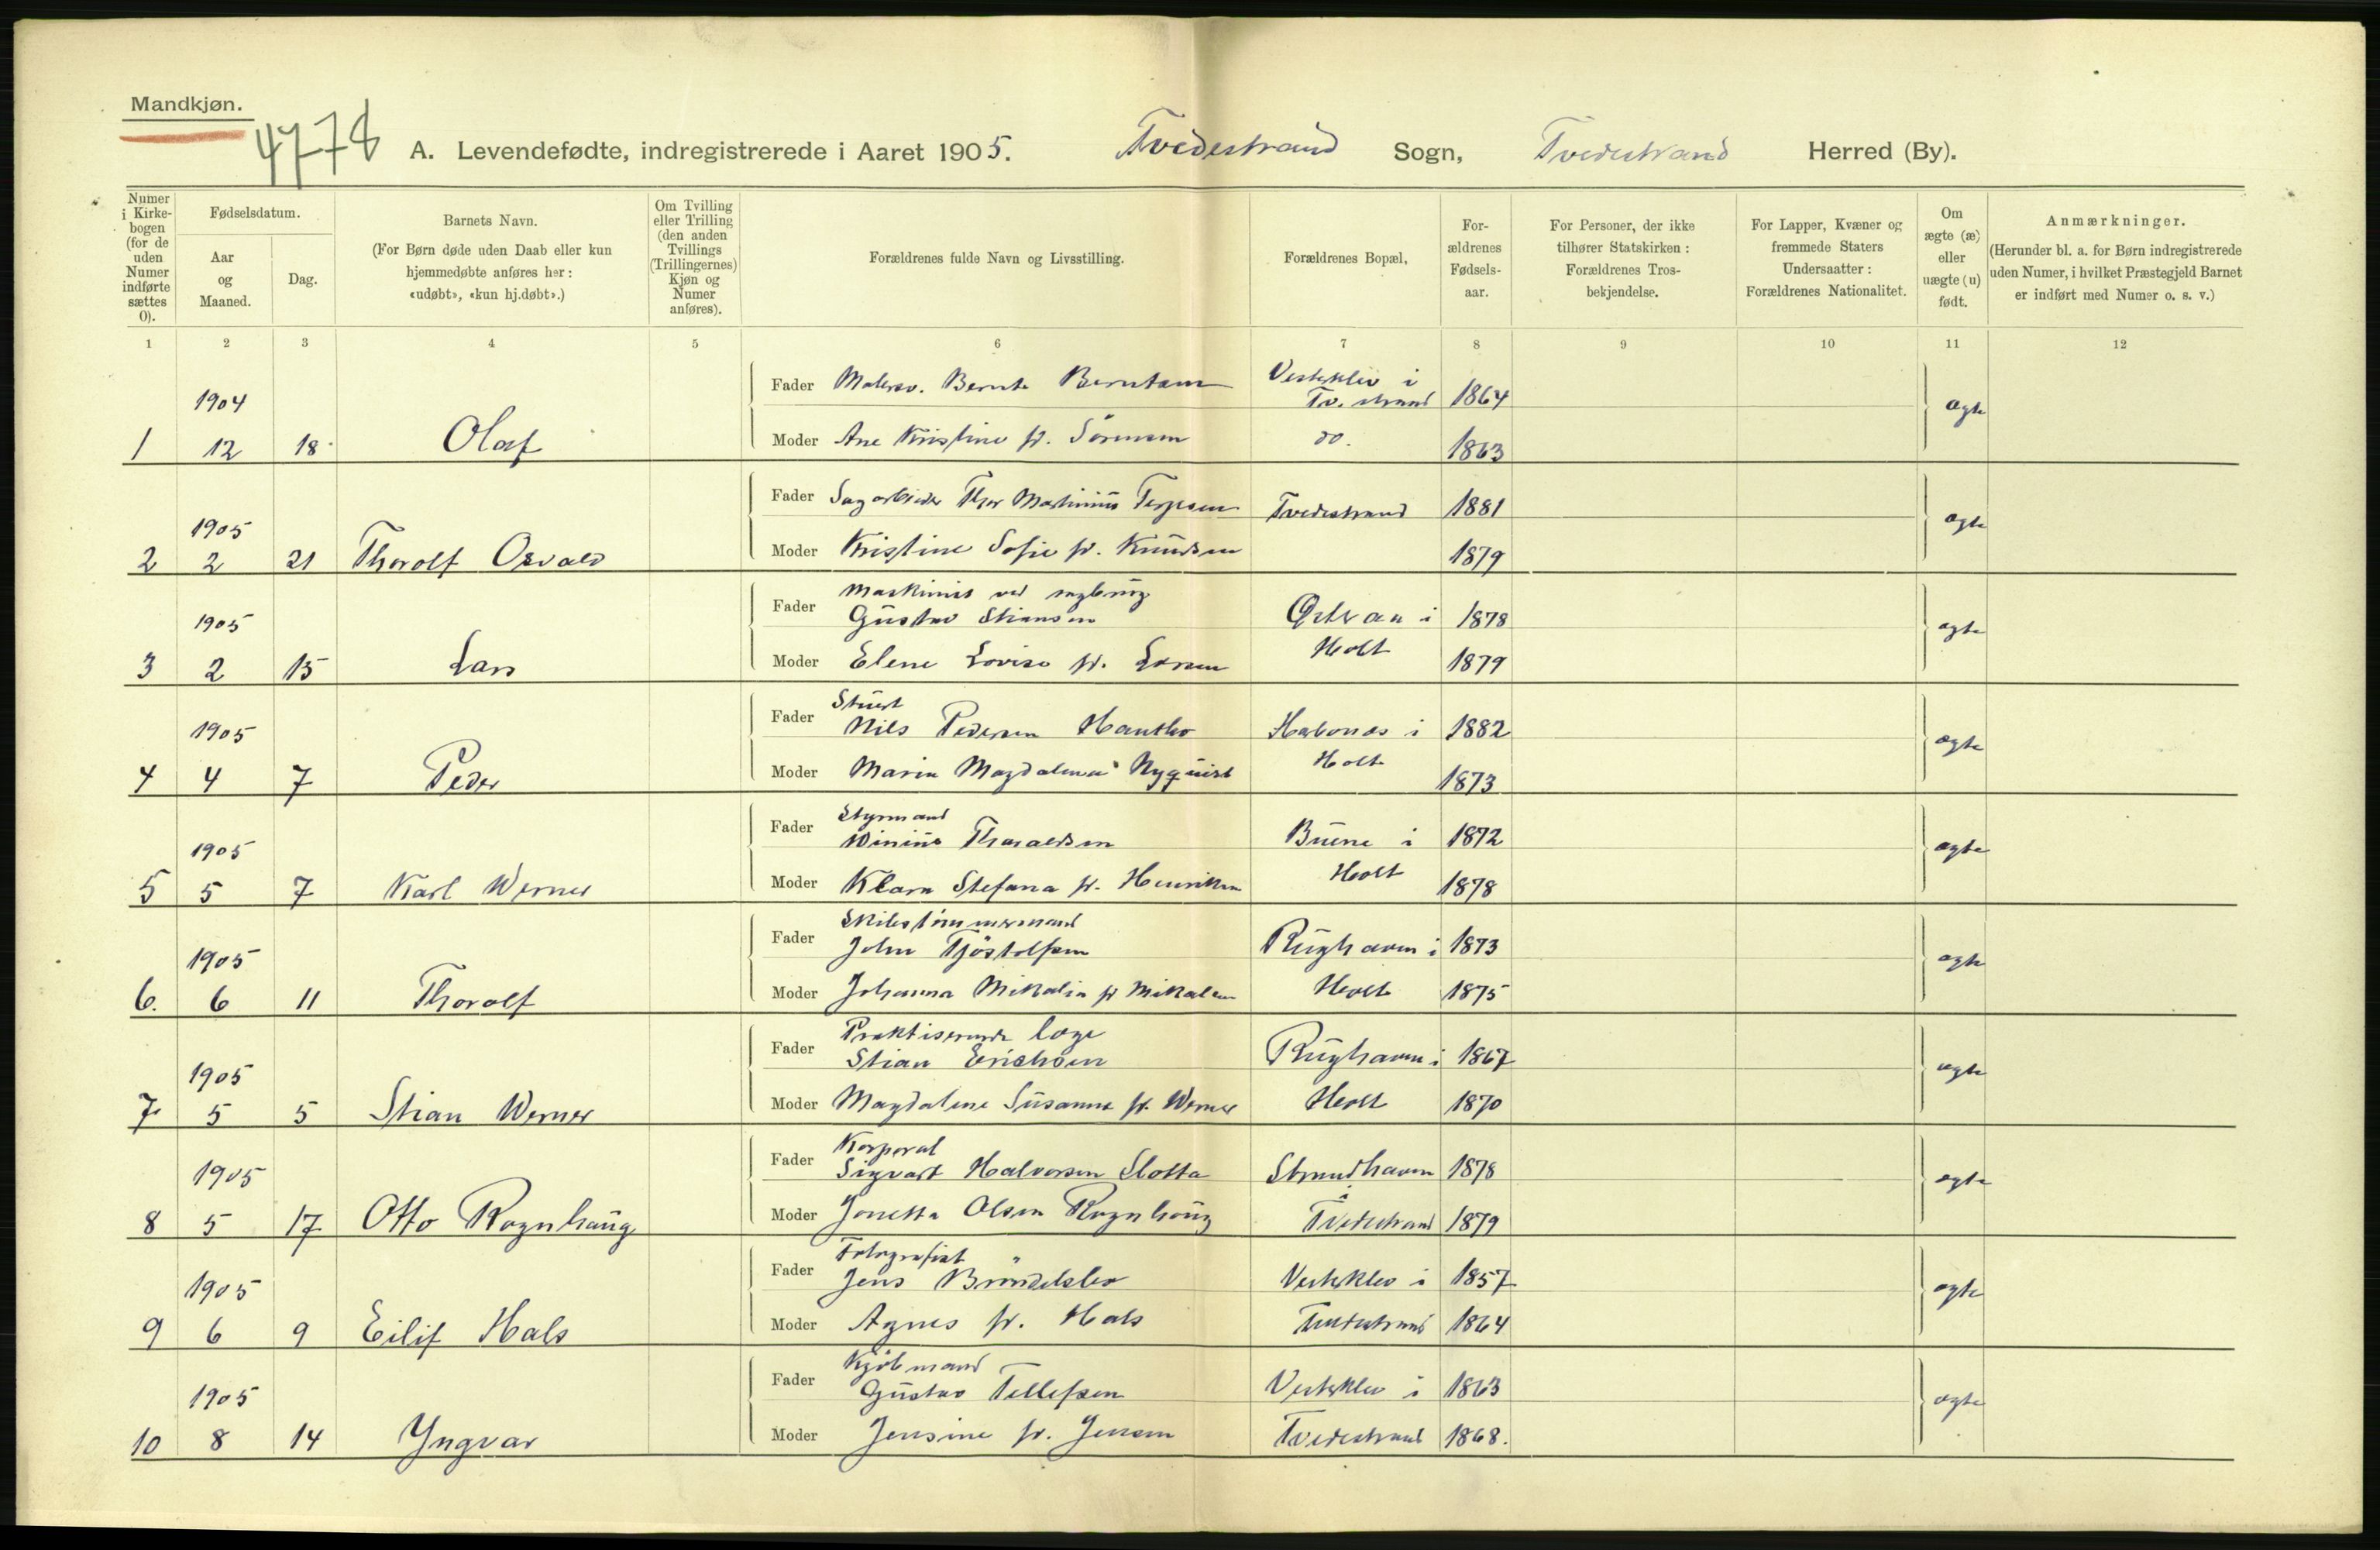 Mandkjøn.
4778
A. Levendefødte, indregistrerede i Aaret 1905. Tvedestrand Sogn, Tvedestrand Herred (By).
Numer i Kirkebogen (for de uden Numer indførte sættes 0).
Fødselsdatum.
Aar og Maaned.
Dag.
Barnets Navn.
(For Børn døde uden Daab eller kun hjemmedøbte anføres her: «udøbt», «kun hj.døbt».)
Om Tvilling eller Trilling (den anden Tvillings (Trillingernes) Kjøn og Numer anføres).
Forældrenes fulde Navn og Livsstilling.
Forældrenes Bopæl,
Forældrenes Fødselsaar.
For Personer, der ikke tilhører Statskirken: Forældrenes Trosbekjendelse.
For Lapper, Kvæner og fremmede Staters Undersaatter: Forældrenes Nationalitet.
Om ægte (æ) eller uægte (u) født.
Anmærkninger.
(Herunder bl. a. for Børn indregistrerede uden Numer, i hvilket Præstegjeld Barnet er indført med Numer o. s. v.)
1 2 3 4 5 6 7 8 9 10 11 12
Fader Malersv. Bernt Berntsen Vesterklev i Tv. strand 1864
1904
1 12 18 Olaf Moder Ane Kristine f. Sörensen do. 1863 ægte
Fader Sagarbeider Thor Martinius Terjesen Tvedestrand 1881
1905
2 2 21 Thorolf Osvald Moder Kristine Sofie f. Knudsen 1879 ægte
Maskinist ved sagbrug
Fader Gustav Stiansen i 1878
1905
3 2 15 Lars Moder Elene Lovise f. Larsen Holt 1879 ægte
Stuert
Fader Nils Pedersen Hantho i 1882
1905
4 4 7 Peder Moder Maria Magdalena Nyquist Holt 1873 ægte
Styrmand
Fader Tharaldsen Buene i 1872
1905
5 5 7 Karl Werner Moder Klara Stefana f. Henriksen Holt 1878 ægte
Skibstömmermand
Fader John Tjöstolfsen Rughaven i 1873
1905
6. 6 11 Thorolf Moder Johanna Mikalia f Mikalsen Holt 1875 ægte
Praktiserende læge
Fader Stian Erichsen Rughaven i 1867
1905
7 5 5 Stian Werner Moder Magdalene Susanne f. Werner Holt 1870 ægte
Korporal
Fader Sigvart Halvorsen Slotta Strandhaven i 1878
1905
8 5 17 Otto Rognhaug Moder Jonetta Olsen Rognhaug Tvedestrand 1879 ægte
Fotografist
Fader Jens Bröndelsbo Vesterklev i 1857
1905
9 6 9 Eilif Hals Moder Agnes f. Hals Tvedestrand 1864 ægte
Kjöbmand
Fader Gustav Tellefsen Vesterklev i 1863
1905
10 8 14 Yngvar Moder Jensine f. Jensen Tvedestrand 1868. ægte